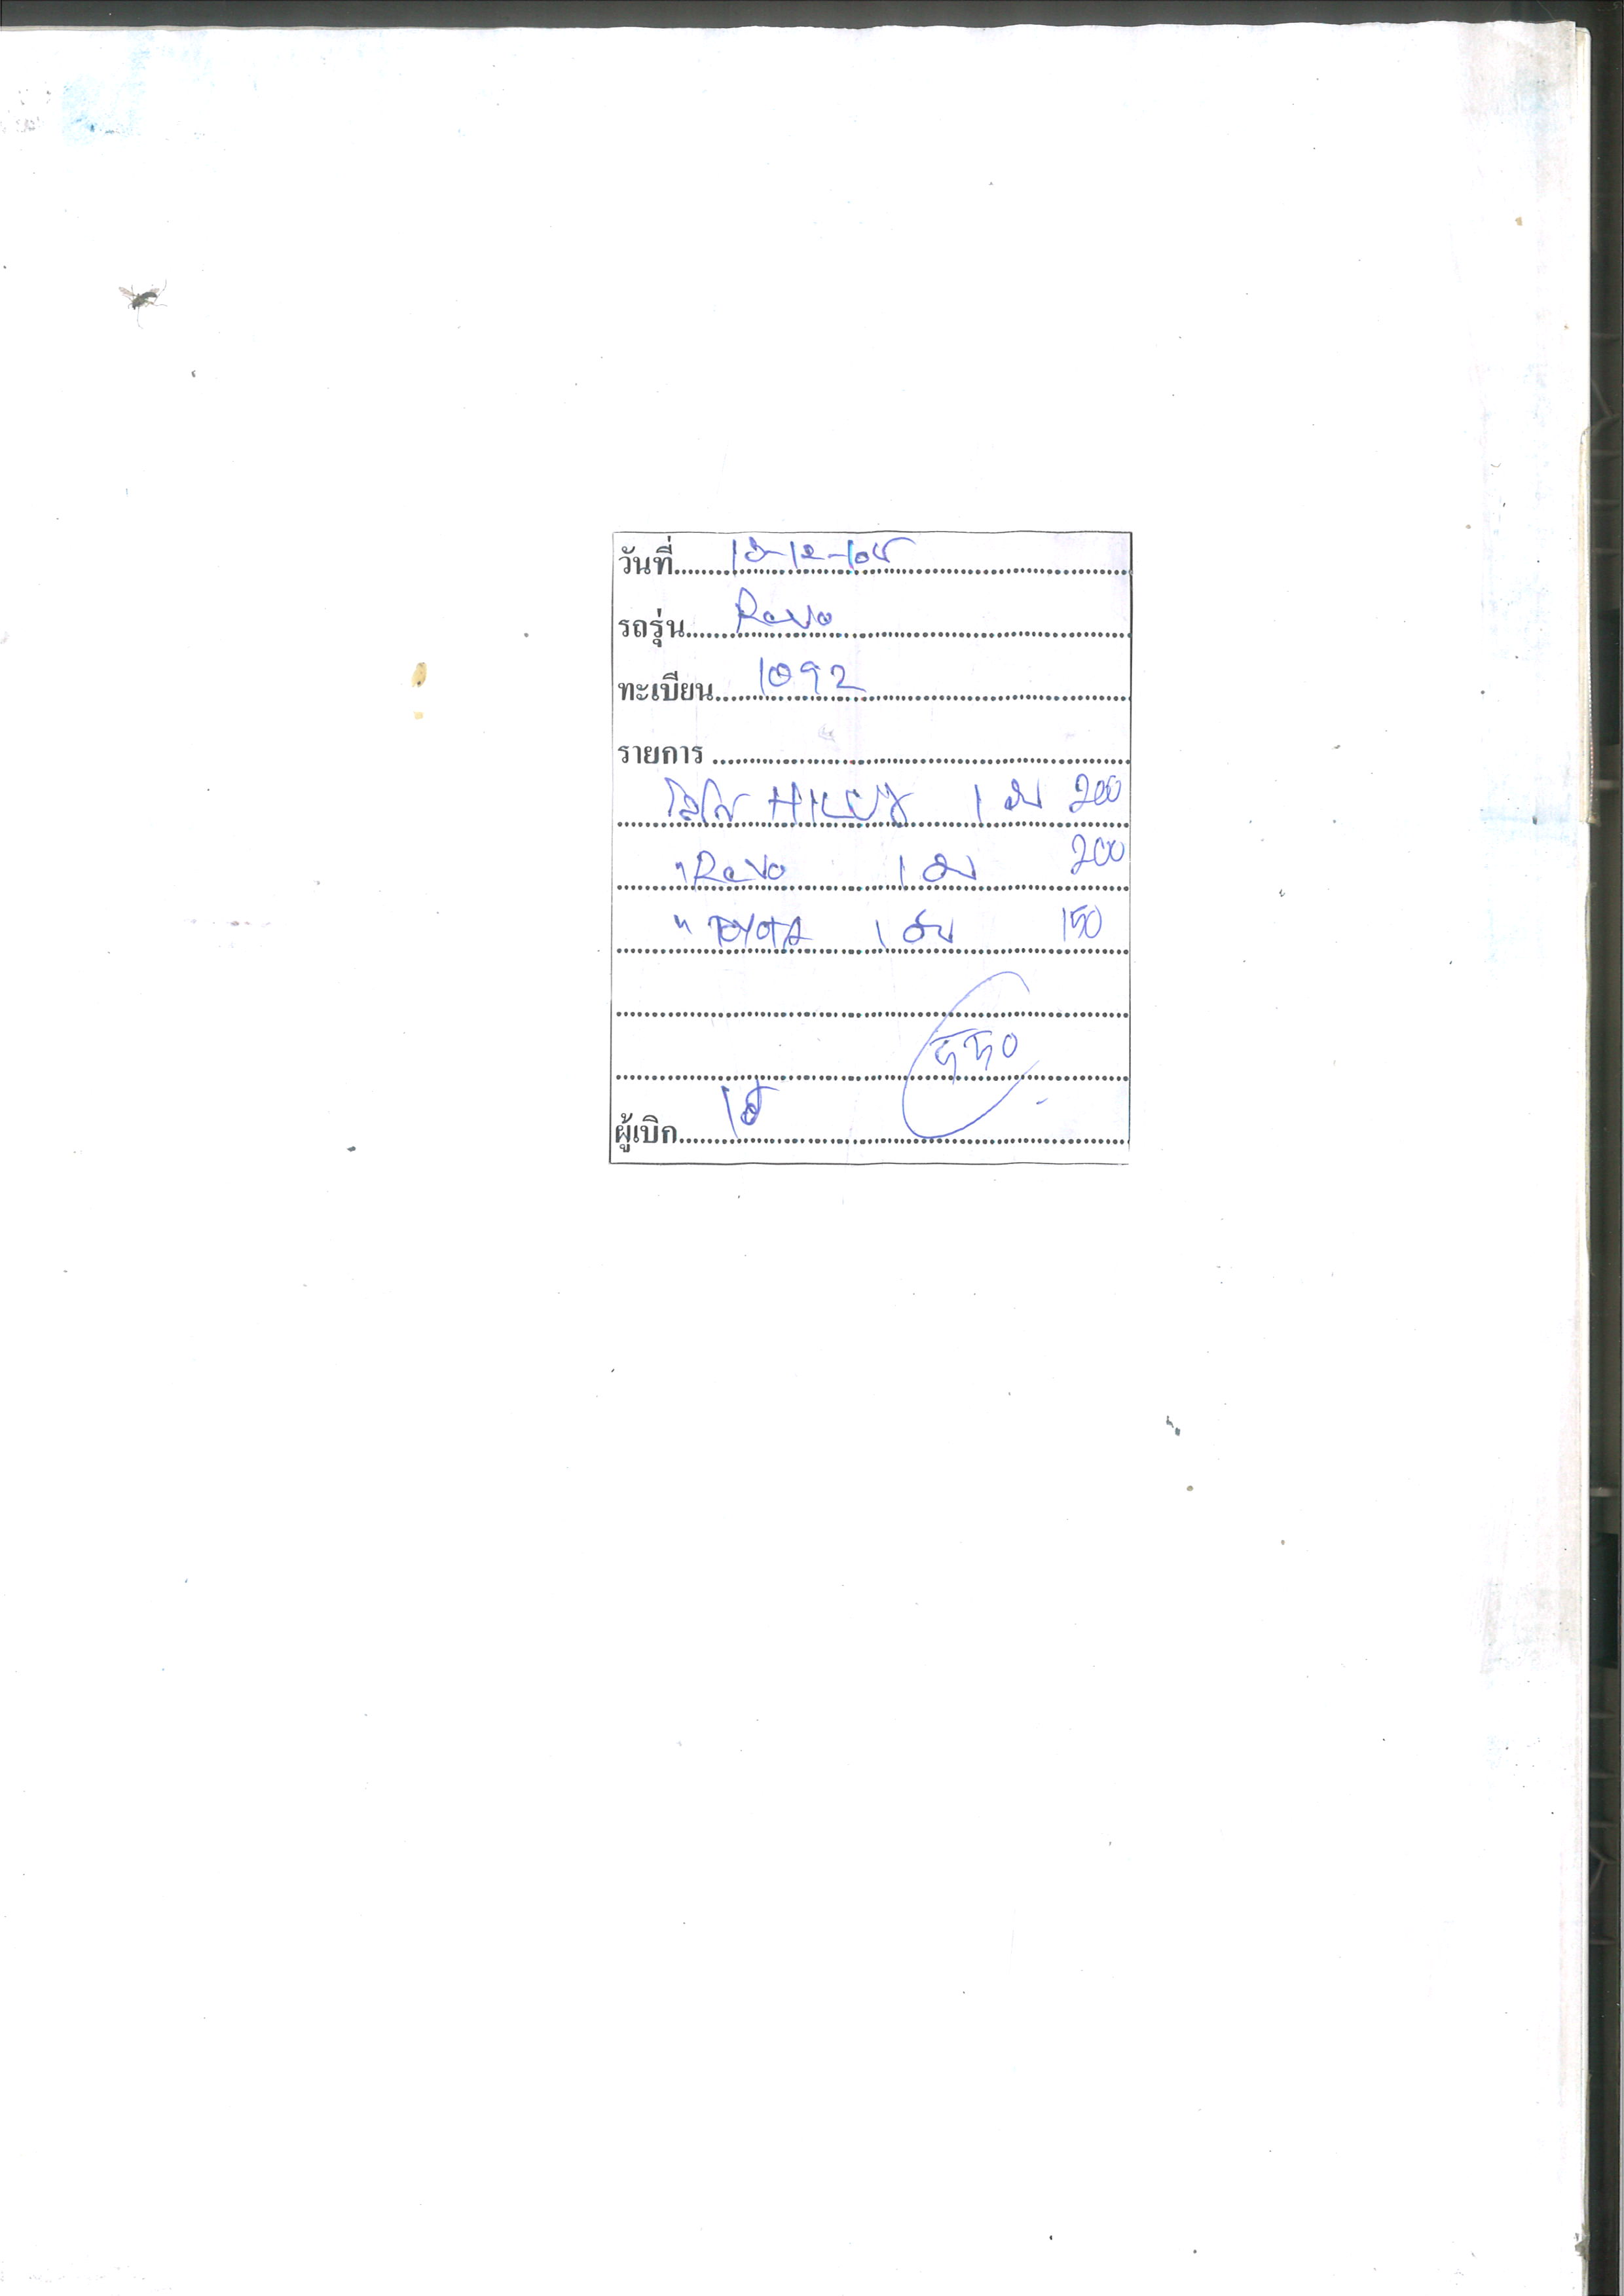 วันที่
รถรุ่น Revo
ทะเบียน 1092
รายการ
โลโก้ HILUX 1 อัน 200
" Revo 1 อัน 200
" TOYOTA 1 อัน 150
550
ผู้เบิก